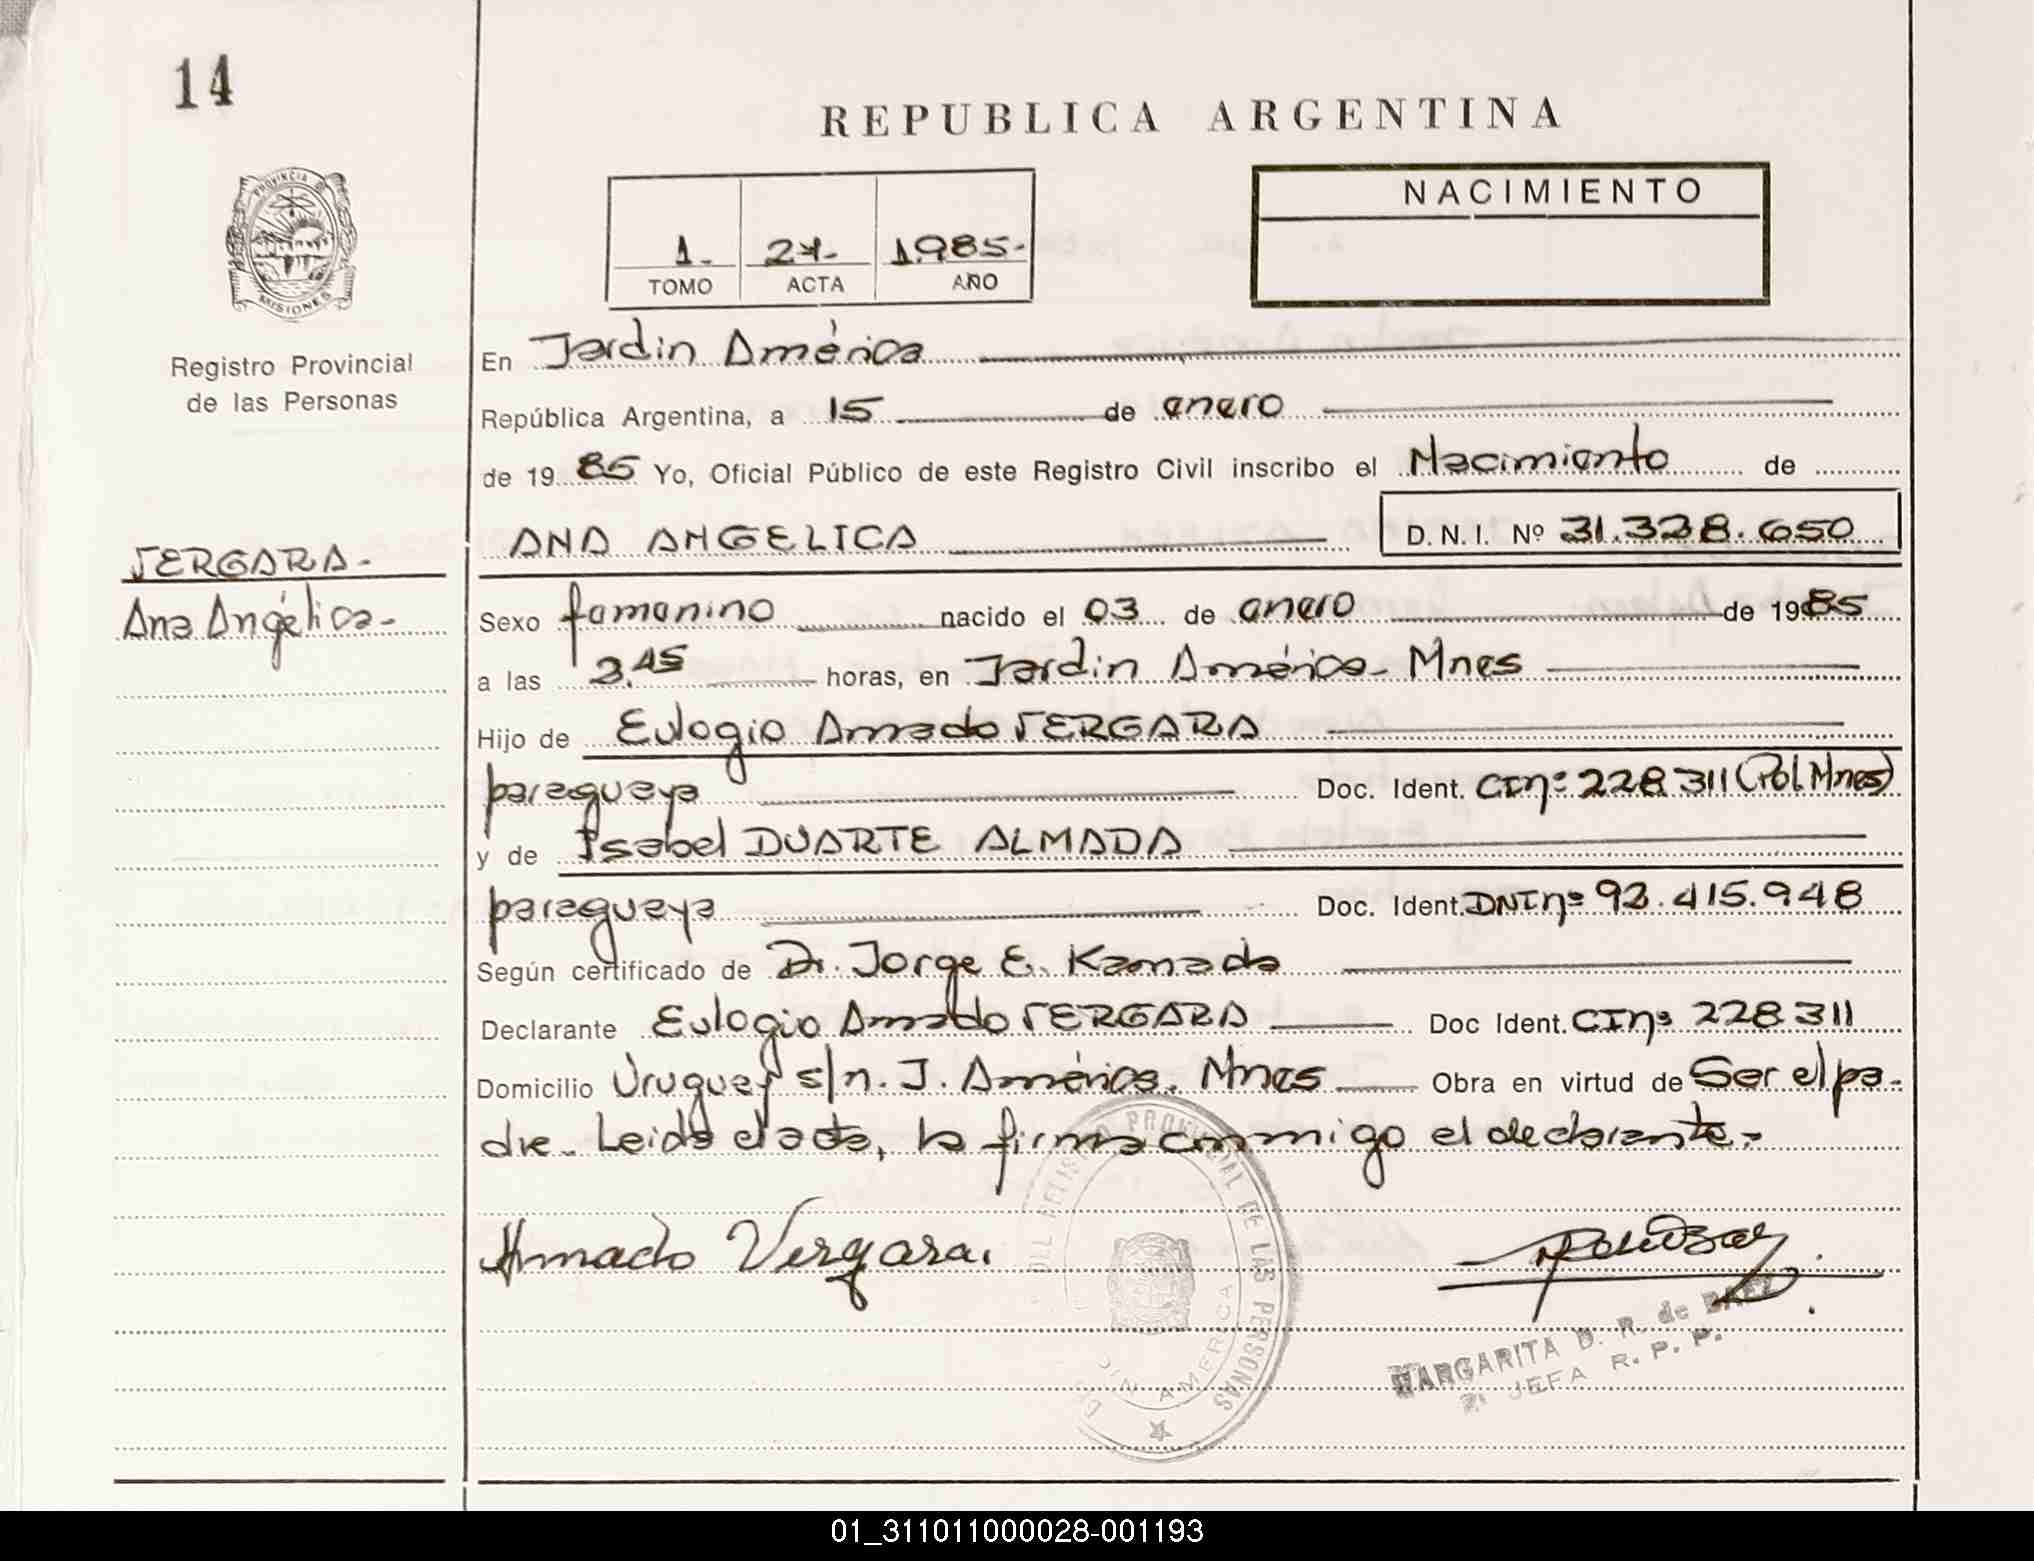 14
REPUBLICA ARGENTINA
PROVINCIA D
MISIONES
Registro Provincial
de las Personas
NACIMIENTO
1. 27. 1985.
TOMO ACTA AÑO
En Jardin América
República Argentina, a 15 de enero
de 1985 Yo, Oficial Público de este Registro Civil inscribo el Nacimiento de
ANA ANGELICA D. N. I. Nº 31.328.650
VERGARA.
Ana Angélica.
Sexo femenino nacido el 03 de enero de 1985
a las 3.45 horas, en Jardin América. Mnes
Hijo de Eulogio Amado VERGARA
paraguaya Doc. Ident. CInº 228.311 (Pol. Mnes)
y de Isabel DUARTE ALMADA
paraguaya Doc. Ident. DNInº 92.415.948
Según certificado de Dr. Jorge E. Kamada
Declarante Eulogio Amado VERGARA Doc Ident. CInº 228.311
Domicilio Uruguay s/n. J. América. Mnes Obra en virtud de Ser el pa-
dre. Leida el acta, la firma conmigo el declarante.
DEL REGISTRO PROVINCIAL DE LAS PERSONAS
JARDIN AMERICA
Amado Vergara.
MARGARITA D. R. de BAEZ
JEFA R. P. P.
01_311011000028-001193